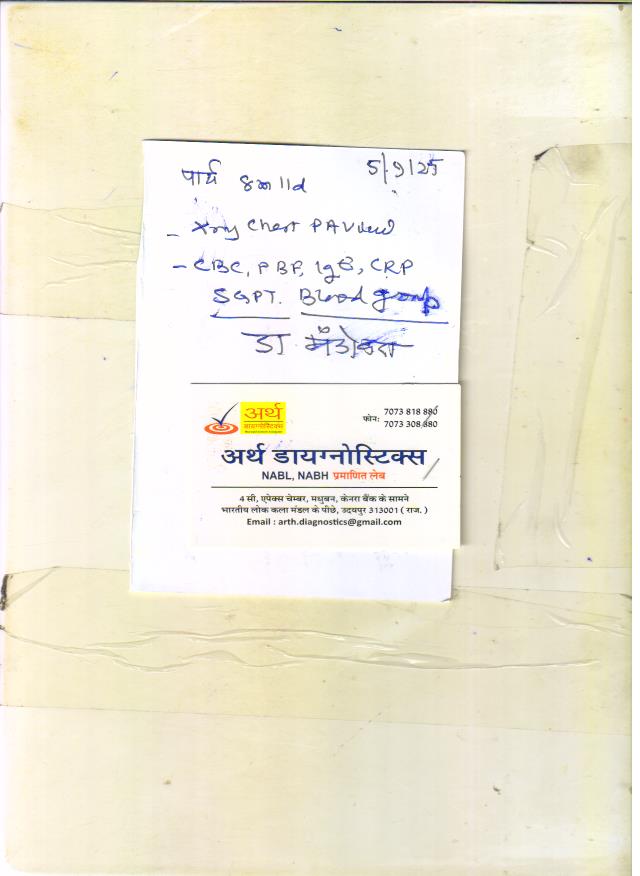 5/9/25
पार्थ 8m 11d
- Xray Chest PA View
- CBC, PBF, IgE, CRP
SGPT. Blood group
डा
अर्थ
डायग्नोस्टिक्स
फोन: 7073 818 880
7073 308 880
अर्थ डायग्नोस्टिक्स
NABL, NABH प्रमाणित लेब
4 सी, एपेक्स चेम्बर, मधुबन, केनरा बैंक के सामने
भारतीय लोक कला मंडल के पीछे, उदयपुर 313001 ( राज. )
Email : arth.diagnostics@gmail.com